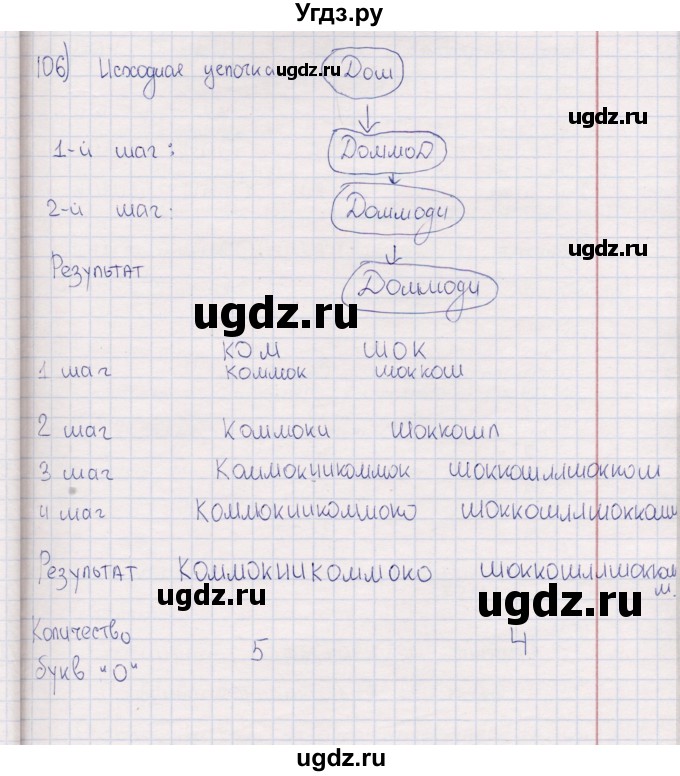 Угдз.ру
106) Исходная цепочка Дом
ugdz.ru
ugdz.ru
1-й шаг: ДоммоД
2-й шаг: Доммоди
ugdz.ru
Результат Доммоди
ugdz.ru
КОМ ШОК
1 шаг коммок шоккош
2 шаг Коммоки Шоккошл
3 шаг Коммокииkоммок шоккошллшоккош
4 шаг Коммокиикоммоко шоккошллшоккош
Результат Коммокиикоммоко шоккошллшоккош
м.
ugdz.ru
ugdz.ru
Количество
букв "О" 5 4
ugdz.ru